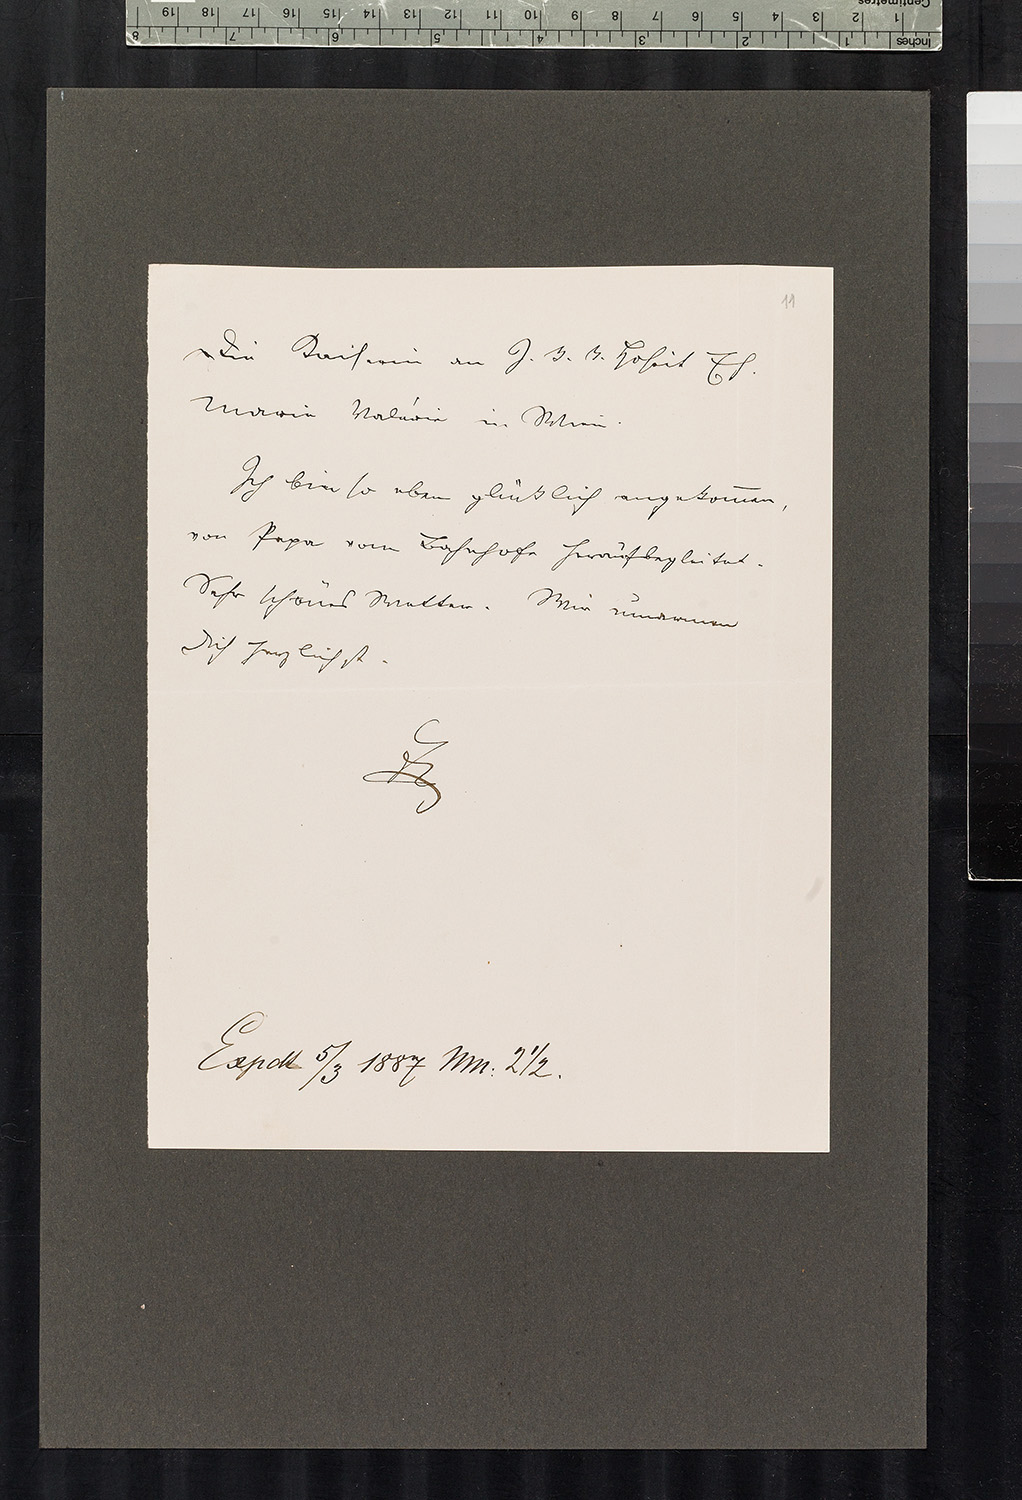 Centimetres
1 2 3 4 5 6 7 8 9 10 11 12 13 14 15 16 17 18 19
Inches 1 2 3 4 5 6 7 8
11
Die Kaiserin an I. K. K. Hoheit Eh.
Marie Valérie in Wien.
Ich bin so eben glücklich angekom̅en,
von Papa vom Bahnhofe heraufbegleitet.
Sehr schönes Wetter. Wir umarmen
Dich herzlichst.
Expdt 5/3 1887 Nm. 2 1/2.